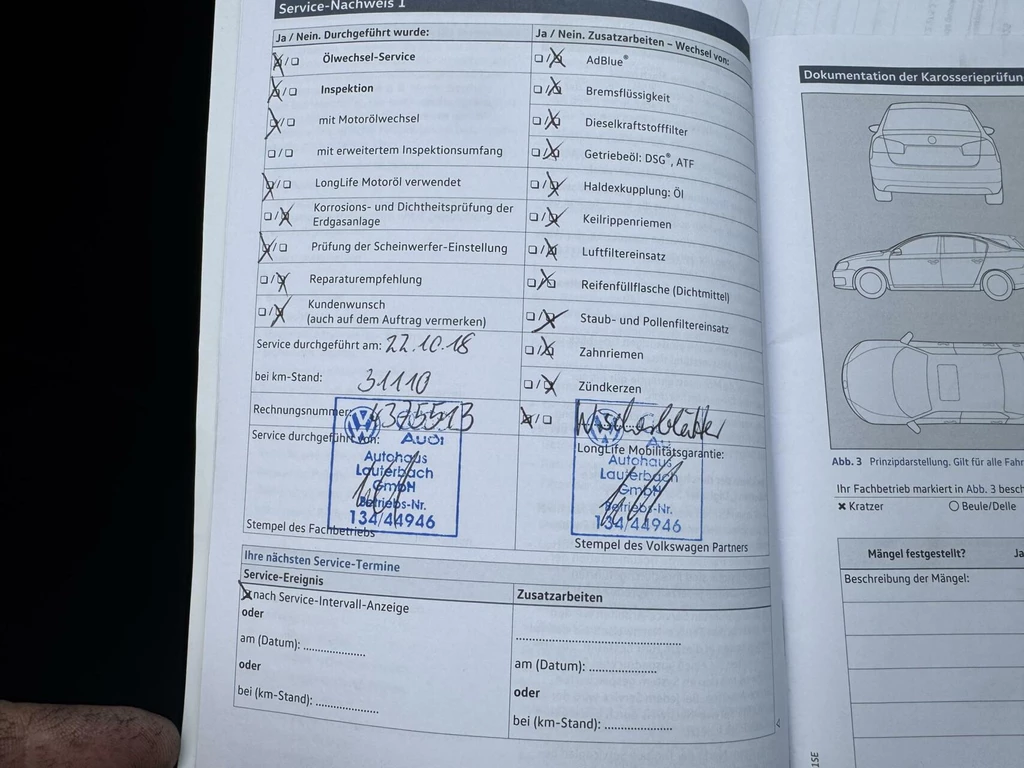 Service-Nachweis 1
Ja / Nein. Durchgeführt wurde:
Ölwechsel-Service
Inspektion
mit Motorölwechsel
mit erweitertem Inspektionsumfang
LongLife Motoröl verwendet
Korrosions- und Dichtheitsprüfung der
Erdgasanlage
Prüfung der Scheinwerfer-Einstellung
Reparaturempfehlung
Kundenwunsch
(auch auf dem Auftrag vermerken)
Service durchgeführt am: 22.10.18
bei km-Stand: 31110
Rechnungsnummer: 4375513
Service durchgeführt von:
Audi
Autohaus
Lauterbach
GmbH
Betriebs-Nr.
134/44946
Stempel des Fachbetriebs
Ja / Nein. Zusatzarbeiten – Wechsel von:
AdBlue®
Bremsflüssigkeit
Dieselkraftstofffilter
Getriebeöl: DSG®, ATF
Haldexkupplung: Öl
Keilrippenriemen
Luftfiltereinsatz
Reifenfüllflasche (Dichtmittel)
Staub- und Pollenfiltereinsatz
Zahnriemen
Zündkerzen
Wischerblätter
LongLife Mobilitätsgarantie:
Autohaus
Lauterbach
GmbH
Betriebs-Nr.
134/44946
Stempel des Volkswagen Partners
Ihre nächsten Service-Termine
Service-Ereignis
nach Service-Intervall-Anzeige
oder
am (Datum): ....................
oder
bei (km-Stand): ....................
Zusatzarbeiten
am (Datum): ....................
oder
bei (km-Stand): ....................
Dokumentation der Karosserieprüfun
Abb. 3 Prinzipdarstellung. Gilt für alle Fahr
Ihr Fachbetrieb markiert in Abb. 3 besch
Kratzer
Beule/Delle
Mängel festgestellt? Ja
Beschreibung der Mängel: